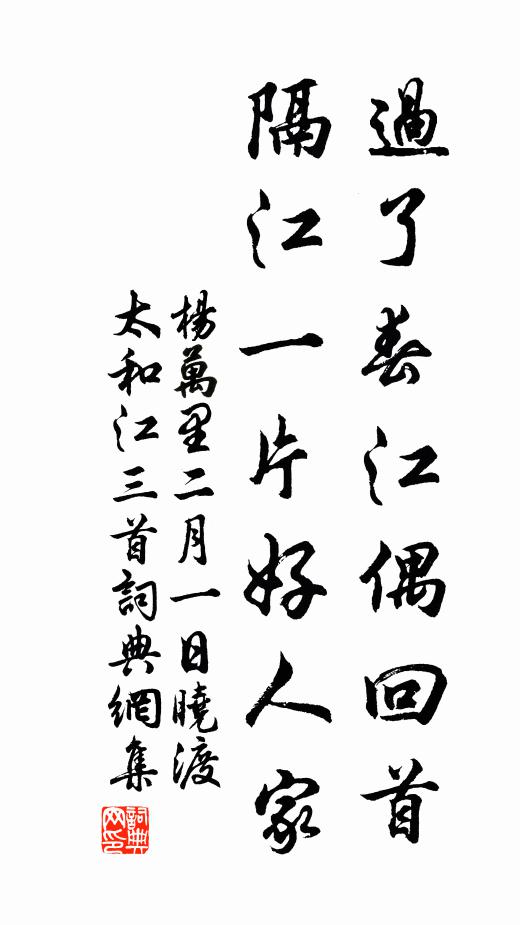 過了春江偶回首
隔江一片好人家
楊萬里二月一日曉渡
太和江三首詞典網集
詞典
网印